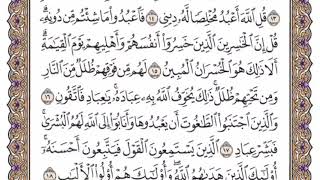 ١٣ قُلِ ٱللَّهَ أَعۡبُدُ مُخۡلِصٗا لَّهُۥ دِينِي ١٤ فَٱعۡبُدُواْ مَا شِئۡتُم مِّن دُونِهِۦۗ
قُلۡ إِنَّ ٱلۡخَٰسِرِينَ ٱلَّذِينَ خَسِرُوٓاْ أَنفُسَهُمۡ وَأَهۡلِيهِمۡ يَوۡمَ ٱلۡقِيَٰمَةِۗ
أَلَا ذَٰلِكَ هُوَ ٱلۡخُسۡرَانُ ٱلۡمُبِينُ ١٥ لَهُم مِّن فَوۡقِهِمۡ ظُلَلٞ مِّنَ ٱلنَّارِ
وَمِن تَحۡتِهِمۡ ظُلَلٞۚ ذَٰلِكَ يُخَوِّفُ ٱللَّهُ بِهِۦ عِبَادَهُۥۚ يَٰعِبَادِ فَٱتَّقُونِ ١٦
وَٱلَّذِينَ ٱجۡتَنَبُواْ ٱلطَّٰغُوتَ أَن يَعۡبُدُوهَا وَأَنَابُوٓاْ إِلَى ٱللَّهِ لَهُمُ ٱلۡبُشۡرَىٰۚ
فَبَشِّرۡ عِبَادِ ١٧ ٱلَّذِينَ يَسۡتَمِعُونَ ٱلۡقَوۡلَ فَيَتَّبِعُونَ أَحۡسَنَهُۥٓۚ
أُوْلَٰٓئِكَ ٱلَّذِينَ هَدَىٰهُمُ ٱللَّهُۖ وَأُوْلَٰٓئِكَ هُمۡ أُوْلُواْ ٱلۡأَلۡبَٰبِ ١٨